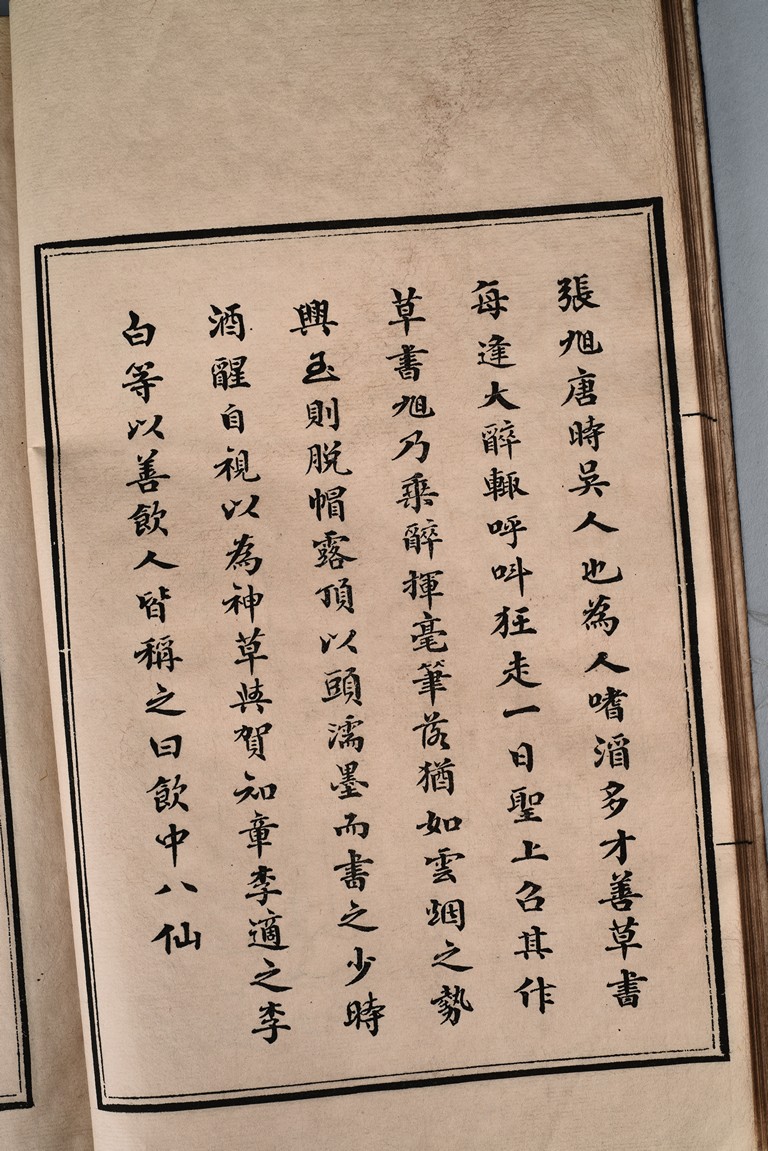 張旭唐時吳人也為人嗜酒多才善草書
每逢大醉輒呼叫狂走一日聖上召其作
草書旭乃乘醉揮毫筆落猶如雲烟之勢
興至則脱帽露頂以頭濡墨而書之少時
酒醒自視以為神草與賀知章李適之李
白等以善飲人皆稱之曰飲中八仙